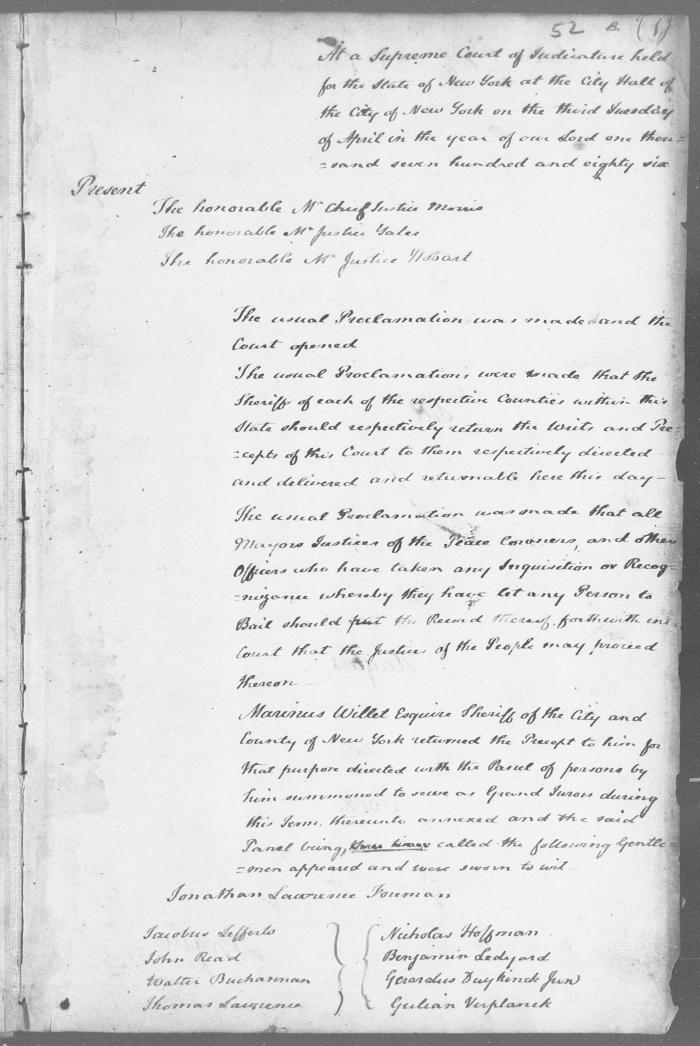 52 B. (1)
At a Supreme Court of Judicature held
for the State of New York at the City Hall of
the City of New York on the third Tuesday
of April in the year of our Lord one thou=
=sand seven hundred and eighty six
Present
The honorable Mr Chief Justice Morris
The honorable Mr Justice Yates
The honorable Mr Justice Hobart
The usual Proclamation was made and the
Court opened
The usual Proclamations were made that the
Sheriff of each of the respective Counties within this
State should respectively return the Writs and Pre=
=cepts of this Court to them respectively directed
and delivered and returnable here this day—
The usual Proclamation was made that all
Mayors Justices of the Peace Coroners, and other
Officers who have taken any Inquisition or Recog=
=nizance whereby they have let any Person to
Bail should put the Record thereof forthwith in
Court that the Justices of the People may proceed
thereon
Marinus Willet Esquire Sheriff of the City and
County of New York returned the Precept to him for
that purpose directed with the Panel of persons by
him summoned to serve as Grand Jurors during
this Term thereunto annexed and the said
Panel being, called the following Gentle=
=men appeared and were sworn to wit
Jonathan Lawrence Foreman
Jacobus Lefferts } { Nicholas Hoffman
John Read Benjamin Ledyard
Walter Buchannan Gerardus Duykinck Junr
Thomas Lawrence Gulian Verplanck